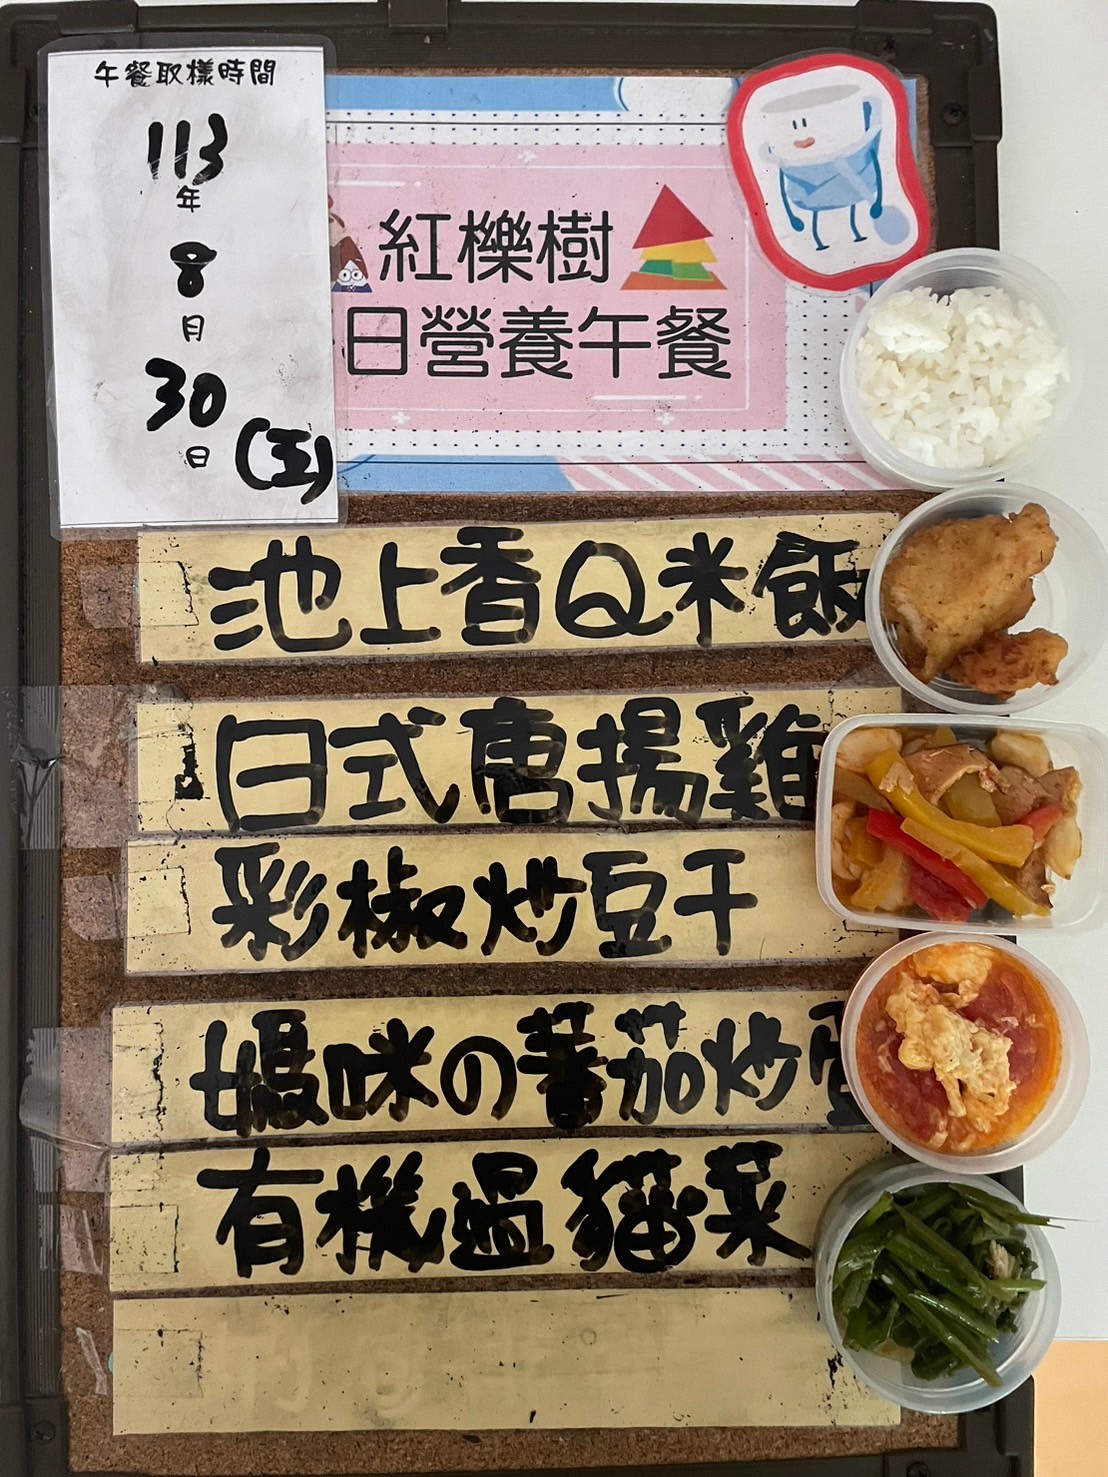 午餐取樣時間
113
年
8
月
30
日
(五)
紅櫟樹
日營養午餐
池上香Q米飯
日式唐揚雞
彩椒炒豆干
媽咪の蕃茄炒蛋
有機過貓菜